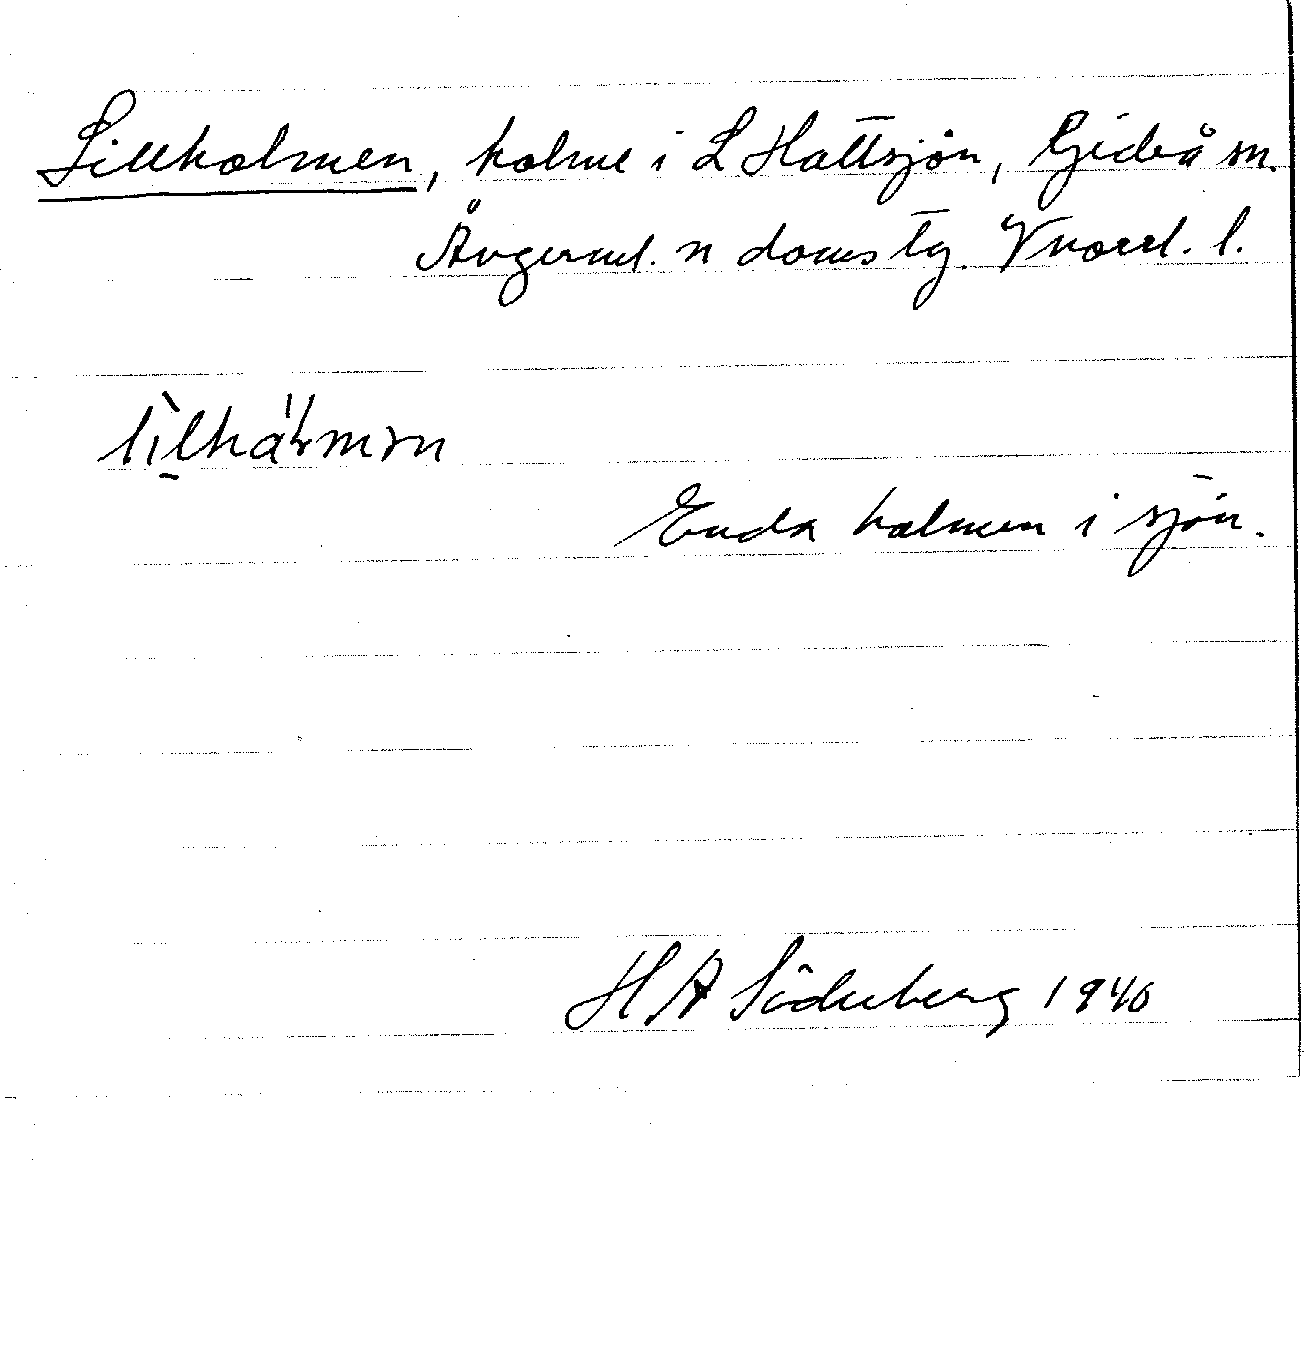 Lillholmen, holme i L Hattsjön, Gideå sn.
Ångerml. n domstg. Vnorrl. l.
Enda holmen i sjön.
H A Söderberg 1940